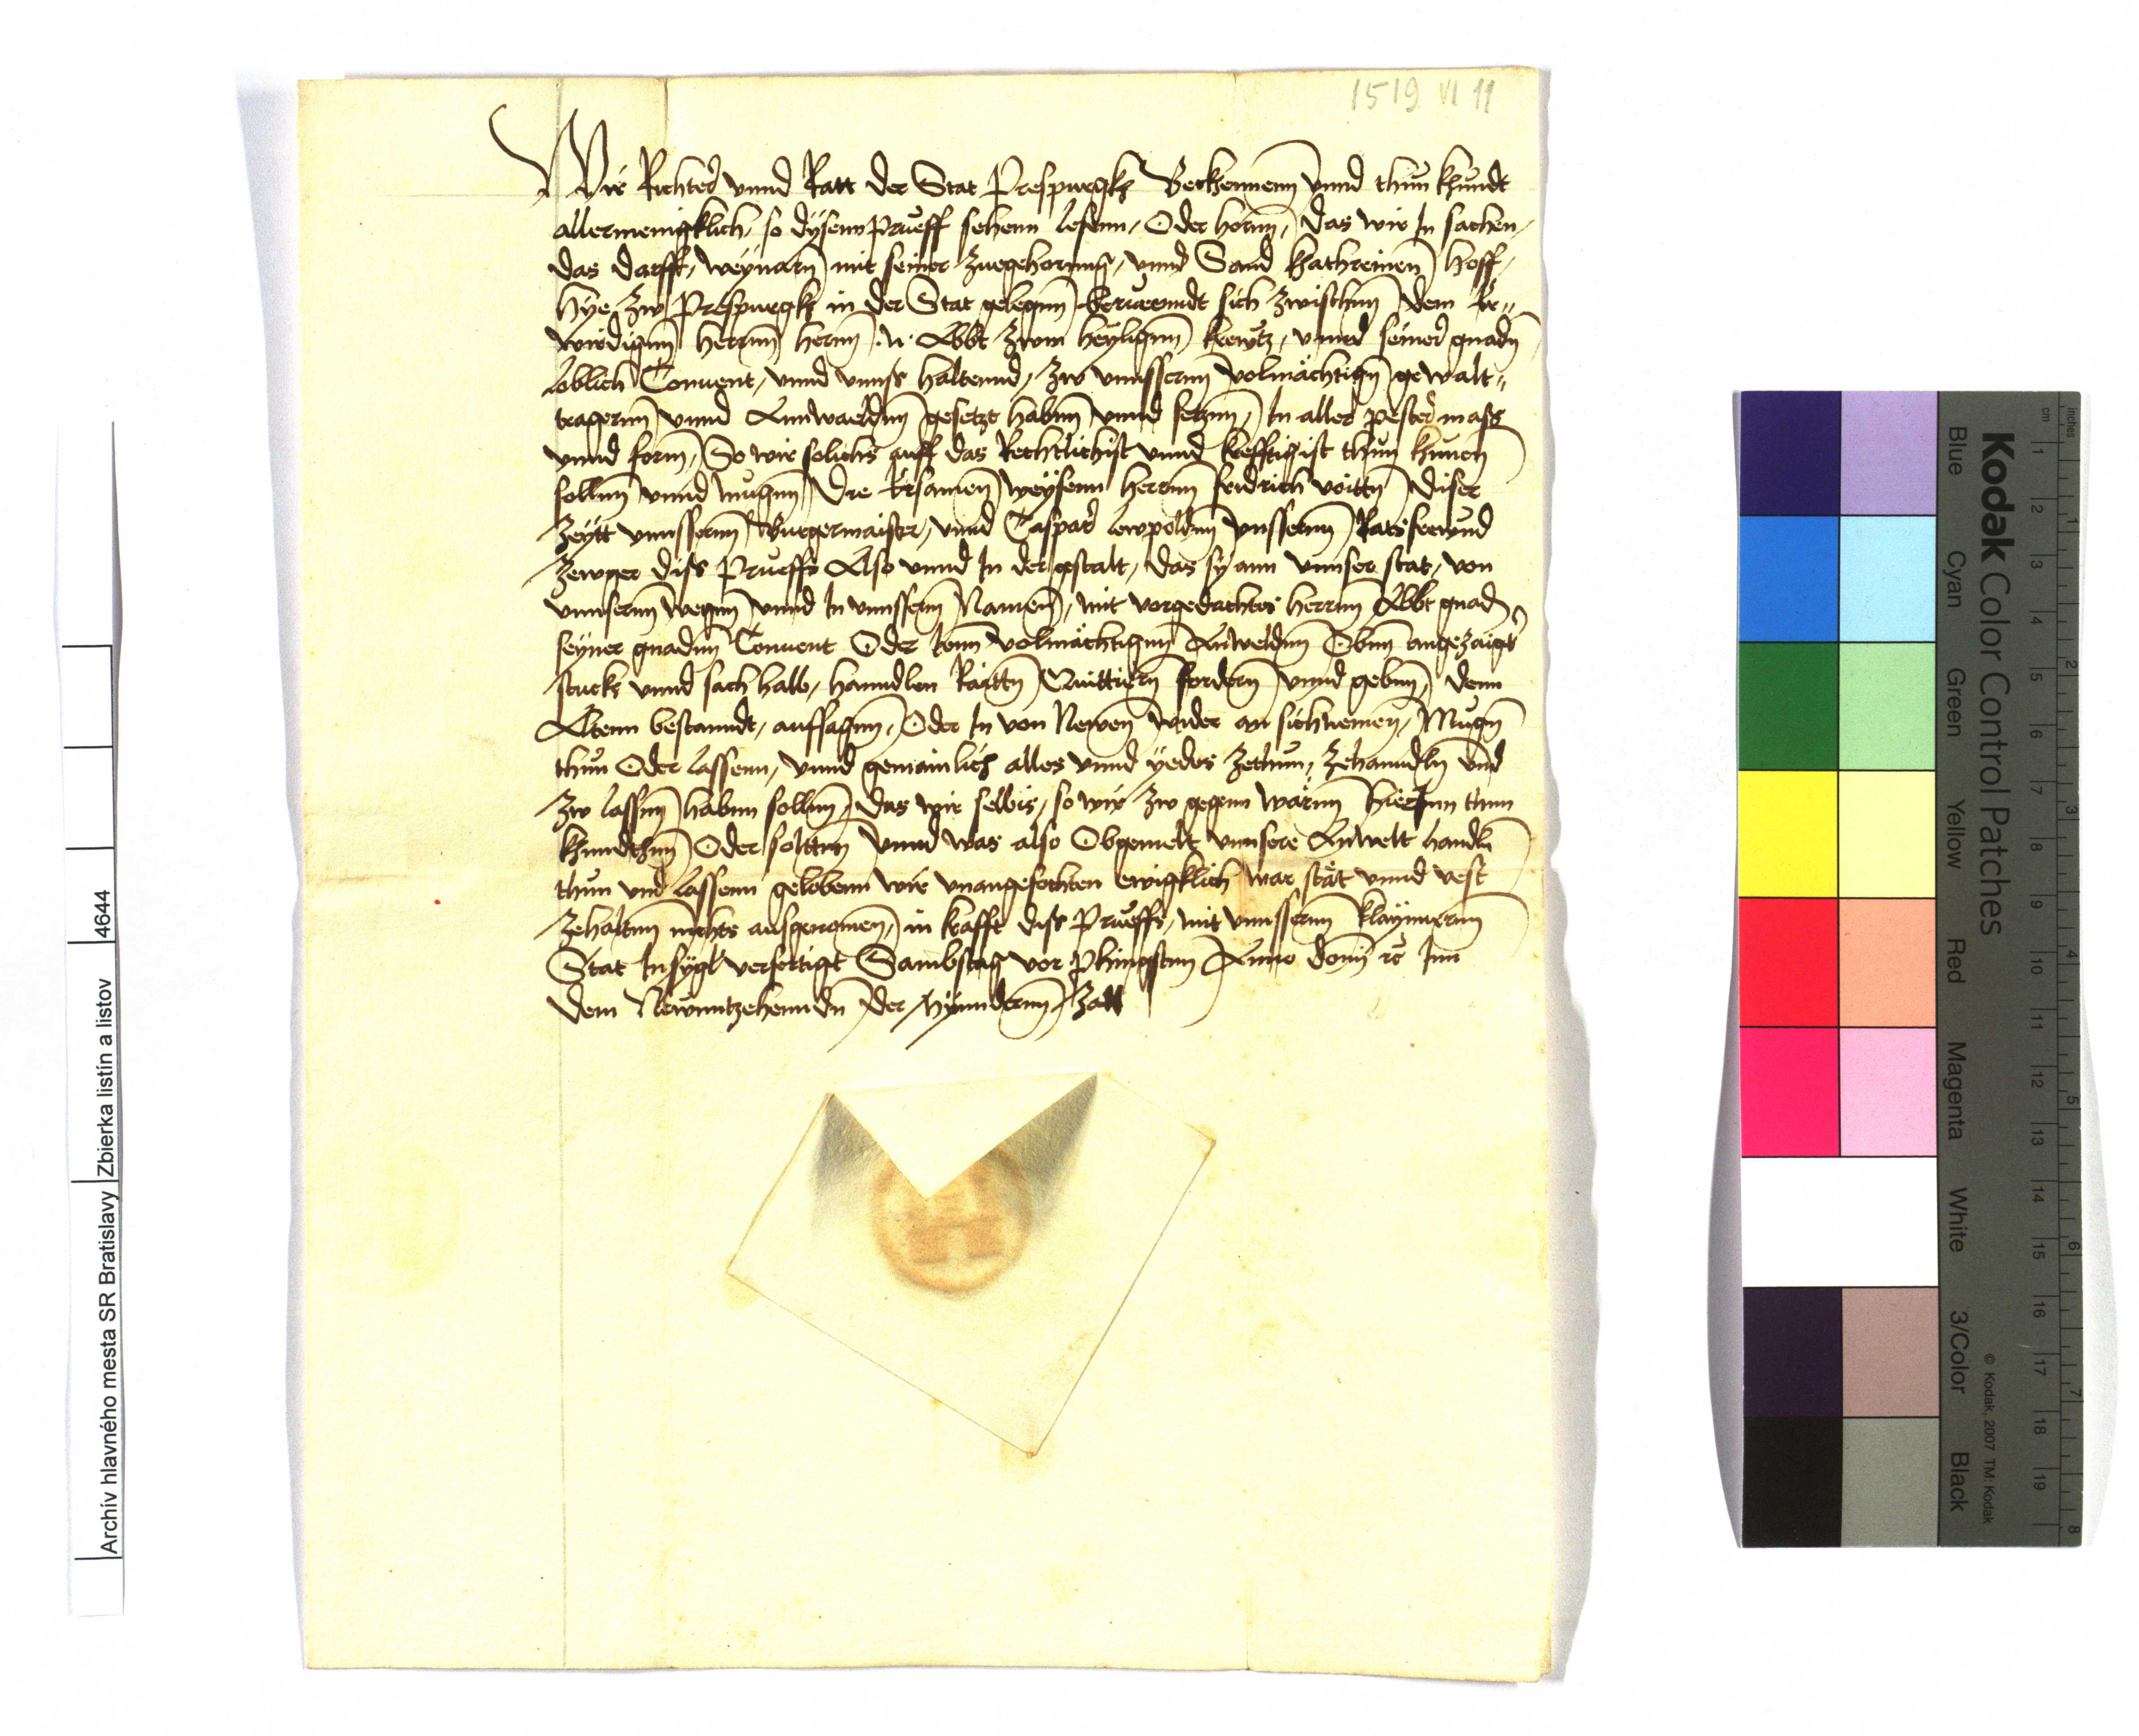 1519 VI 11
Wir Richter vnnd Ratt der Stat Prespurgk Bekhennenn vnnd thun khundt
allermenigklich, so dysenn prueff sehenn lesenn, Oder hornn, das wir In sachen,
das darfft, weynarn mit seiner Zuegehorung, vnnd Sand Kathreinen hoff,
hye Zw Prespurgk in der Stat gelegnn berurenndt sich Zwischnn dem Er„
wirdignn herrnn hernn .N. Abbt Zwm heylignn Krewtz, vnnd seiner gnadn
loblich Conuent, vnnd vnnss haltennd, Zw vnnssernn volmächtign gewalt„
tragernn vnnd Annwaeldnn gesetzt habnn vnnd setznn, In aller pester mass
vnnd form, So wir solichs auff das Rechtlichist vnnd krefftigist thun khunen
sollnn vnnd mugnn, Die Ersamen weysenn herrnn fridrich voittn diser
Zeytt vnnssernn Burgermaister, vnnd Caspar lewpoldnn vnssernn Ratsfrewnd
Zewger diss Prueffs Also vnnd In der gstalt, das sy ann vnnser stat, von
vnnsernn wegnn vnnd In vnnssernn Namen, mit vorgedachtes herrnn Abbt gnad
seyner gnadnn Conuent Oder Jenn volmächtignn Anweldnn Obnn angezaigts
stucks vnnd sach halb, hanndlen Raittn Quittiern fordern vnnd gebnn, denn
Altenn bestanndt, auffsagnn, Oder In von Newen wider an sich nemen, Mugn
thun Oder lassenn, vnnd gemainlich alles vnnd yedes Zethun, Zehanndln vnd
Zw lassnn habnn sollnn, das wir selbis, so wir Zw gegnn warnn hierInn thun
khundtnn Oder solttnn vnnd was also Obgemelt vnnsere Anwelt handln
thun vnd lassenn gelobenn wir vnangefochten ewigklich war stät vnnd vest
Zehaltnn nichts ausgenomen, in krafft diss Prueffs, mit vnnssernn klaynnernn
Stat Insygl verfertigt Sambstag vor Phingstnn Anno domi rc Inn
dem Newnntzehenndn der Mynndernn Zall
Archív hlavného mesta SR Bratislavy
Zbierka listín a listov
4644
Kodak Color Control Patches
Blue Cyan Green Yellow Red Magenta White 3/Color Black
© Kodak, 2007 TM: Kodak
cm 1 2 3 4 5 6 7 8 9 10 11 12 13 14 15 16 17 18 19
inches 1 2 3 4 5 6 7 8